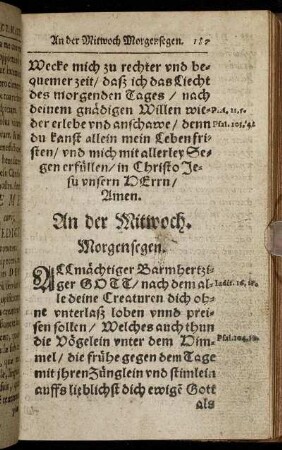 An der Mitwoch Morgensegen.
Wecke mich zu rechter vnd be-
quemer zeit / daß ich das Liecht
des morgenden Tages / nach
deinem gnädigen Willen wie-
der erlebe vnd anschawe / denn
du kanst allein mein Leben fri-
sten / vnd mich mit allerley Se-
gen erfüllen / in Christo Je-
su vnsern HErrn /
Amen.
An der Mitwoch.
Morgensegen.
ALLmächtiger Barmhertzi-
ger GOTT / nach dem al-
le deine Creaturen dich oh-
ne vnterlaß loben vnnd prei-
sen sollen / Welches auch thun
die Vögelein vnter dem Him-
mel / die frühe gegen dem Tage
mit jhren Zünglein vnd stimlein
auffs lieblichst dich ewigē Gott
als